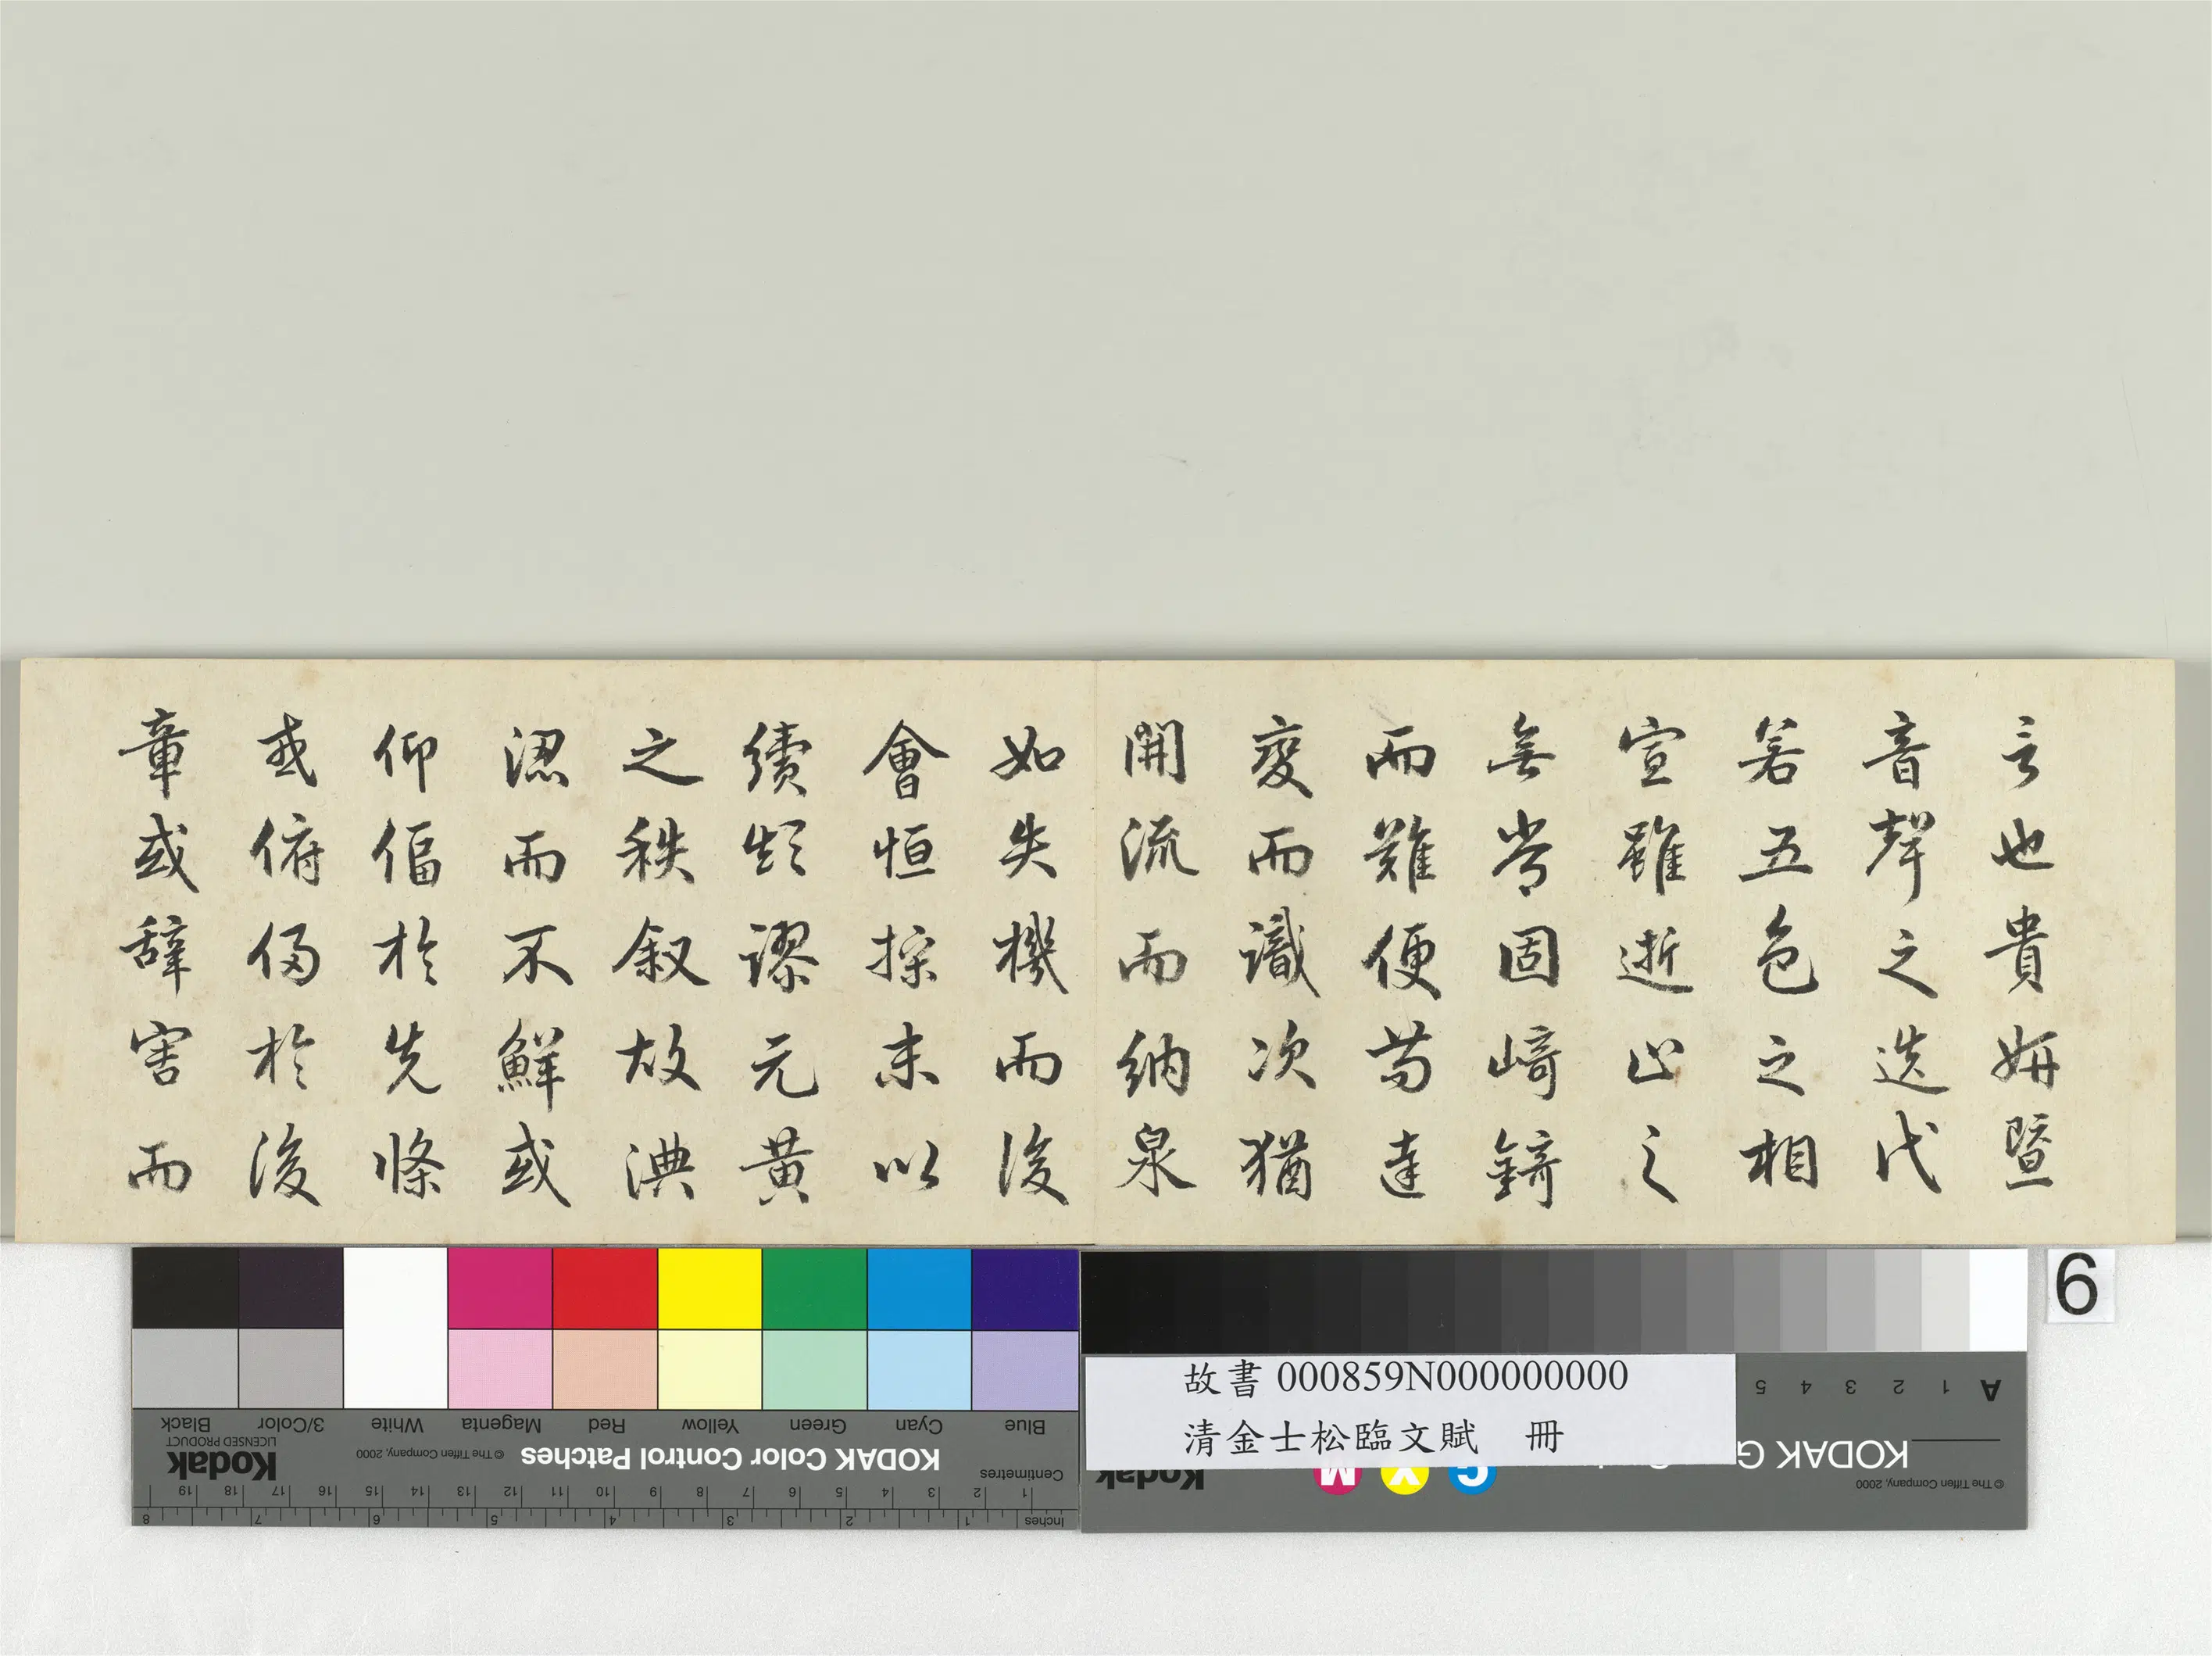 言也貴妍暨
音聲之迭代
若五色之相
宣雖逝止之
無常固崎錡
而難便苟達
變而識次猶
開流而納泉
如失機而後
會恒操末以
續顛謬元黄
之秩叙故淟
涊而不鮮或
仰偪於先條
或俯侵於後
章或辭害而
6
故書 000859N000000000
清金士松臨文賦 冊
Blue
Cyan
Green
Yellow
Red
Magenta
White
3/Color
Black
KODAK Color Control Patches
© The Tiffen Company, 2000
Kodak
LICENSED PRODUCT
Centimetres
1 2 3 4 5 6 7 8 9 10 11 12 13 14 15 16 17 18 19
Inches
1 2 3 4 5 6 7 8
A 1 2 3 4 5
KODAK G
© The Tiffen Company, 2000
Kodak
C Y M